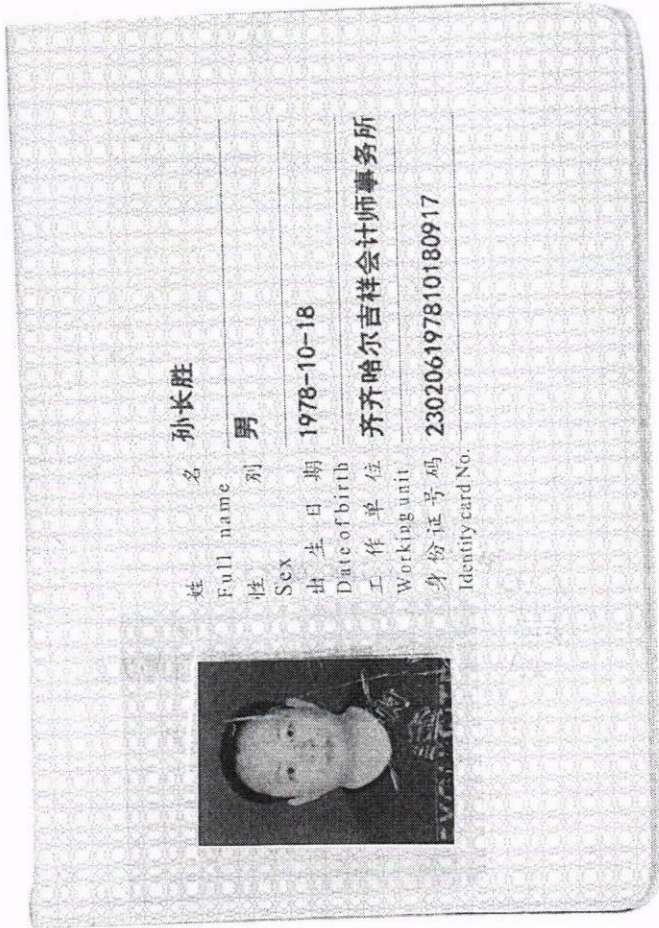 姓名 孙长胜
Full name
性别 男
Sex
出生日期 1978-10-18
Date of birth
工作单位 齐齐哈尔吉祥会计师事务所
Working unit
身份证号码 230206197810180917
Identity card No.